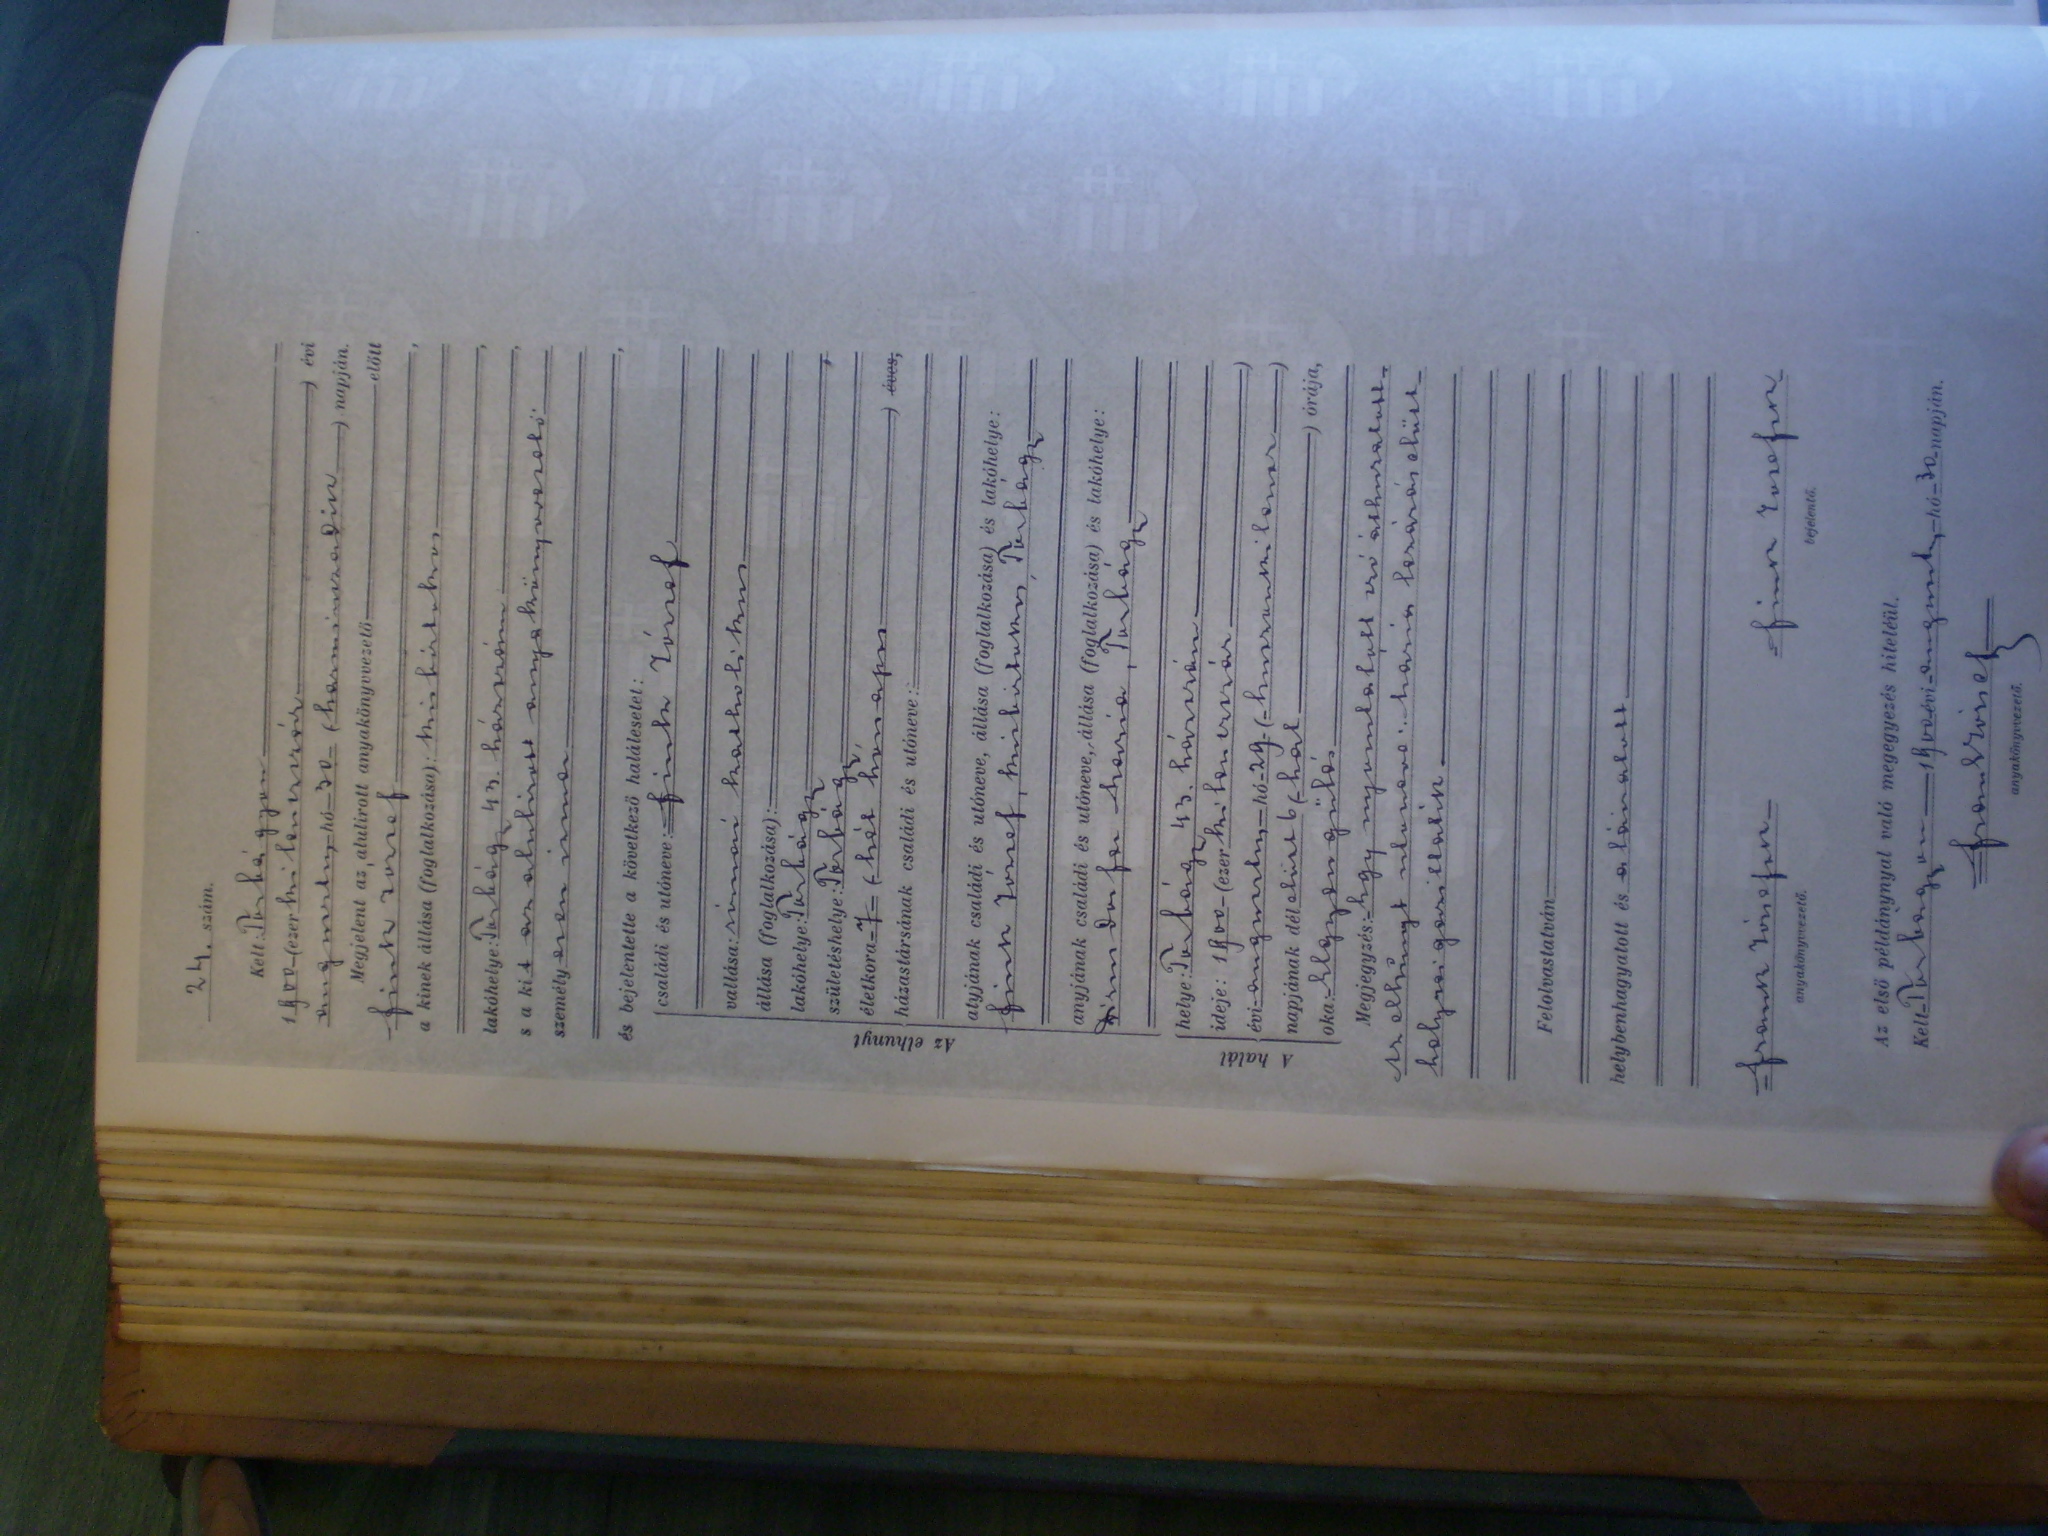 24. szám.
Kelt: Torbágyon
1900 (ezerkilencszáz) évi
augusztus hó 30 (harminczadik) napján.
Megjelent az alulirott anyakönyvvezető előtt
Fink József,
a kinek állása (foglalkozása): kisbirtokos
lakóhelye: Torbágy 43. házszám,
s a kit az alulirott anyakönyvvezető
személyesen ismer,
és bejelentette a következő halálesetet:
Az elhunyt
családi és utóneve: Fink József
vallása: római katholikus
állása (foglalkozása):
lakóhelye: Torbágy
születéshelye: Torbágy,
életkora 7 (hét hónapos) éves,
házastársának családi és utóneve:
atyjának családi és utóneve, állása (foglalkozása) és lakóhelye:
Fink József, kisbirtokos, Torbágy
anyjának családi és utóneve, állása (foglalkozása) és lakóhelye:
Mária, Torbágy
A halál
helye: Torbágy 43. házszám
ideje: 1900 (ezerkilencszáz)
évi augusztus hó 29 (huszonkilencz)
napjának délelőtt 6 (hat) órája,
oka:
Megjegyzés: hogy nyomtatott szó áthuzatott.
Az elhúnyt utónevei lezárás előtt
helyesigazíttatik.
Felolvastatván
helybenhagyatott és aláiratott
Frank József
anyakönyvvezető.
Fink József
bejelentő.
Az első példánynyal való megegyezés hiteléül.
Kelt Torbágyon 1900 évi augusztus hó 30 napján.
Frank József
anyakönyvvezető.